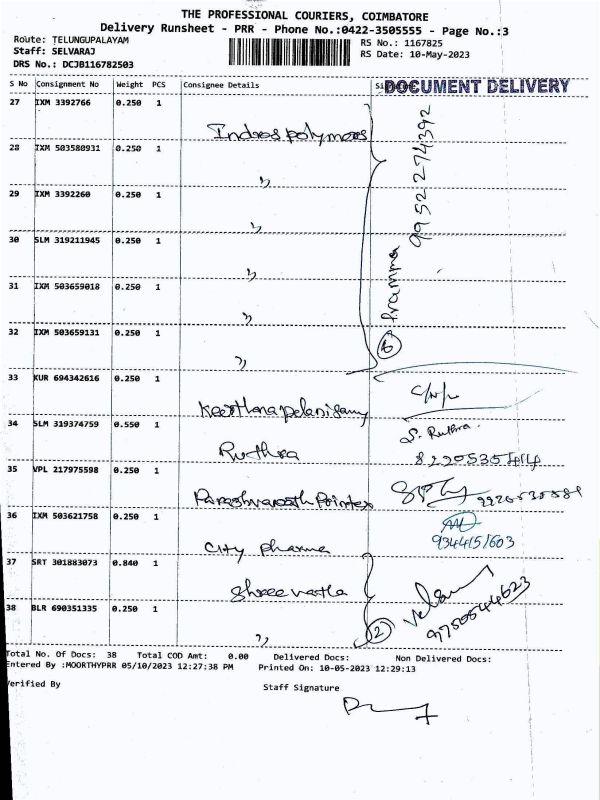 THE PROFESSIONAL COURIERS, COIMBATORE
Delivery Runsheet - PRR - Phone No.:0422-3505555 - Page No.:3
Route: TELUNGUPALAYAM
RS No.: 1167825
Staff: SELVARAJ
RS Date: 10-May-2023
DRS No.: DCJB116782503
S No Consignment No Weight PCS Consignee Details
DOCUMENT DELIVERY
27 IXM 3392766 0.250 1
Indros polymers
28 IXM 503580931 0.250 1
"
29 IXM 3392260 0.250 1
"
30 SLM 319211945 0.250 1
"
31 IXM 503659018 0.250 1
"
32 IXM 503659131 0.250 1
"
9952274392
Pramma
6
33 KUR 694342616 0.250 1
C/N/L
Keerthana palanisamy
34 SLM 319374759 0.550 1
S. Ruthra.
Ruthra
35 VPL 217975598 0.250 1
36 IXM 503621758 0.250 1
9344151603
City pharma
37 SRT 301883073 0.840 1
Shree vastha
38 BLR 690351335 0.250 1
9750544623
" 2
Total No. Of Docs: 38 Total COD Amt: 0.00 Delivered Docs: Non Delivered Docs:
Entered By :MOORTHYPRR 05/10/2023 12:27:38 PM Printed On: 10-05-2023 12:29:13
Verified By
Staff Signature